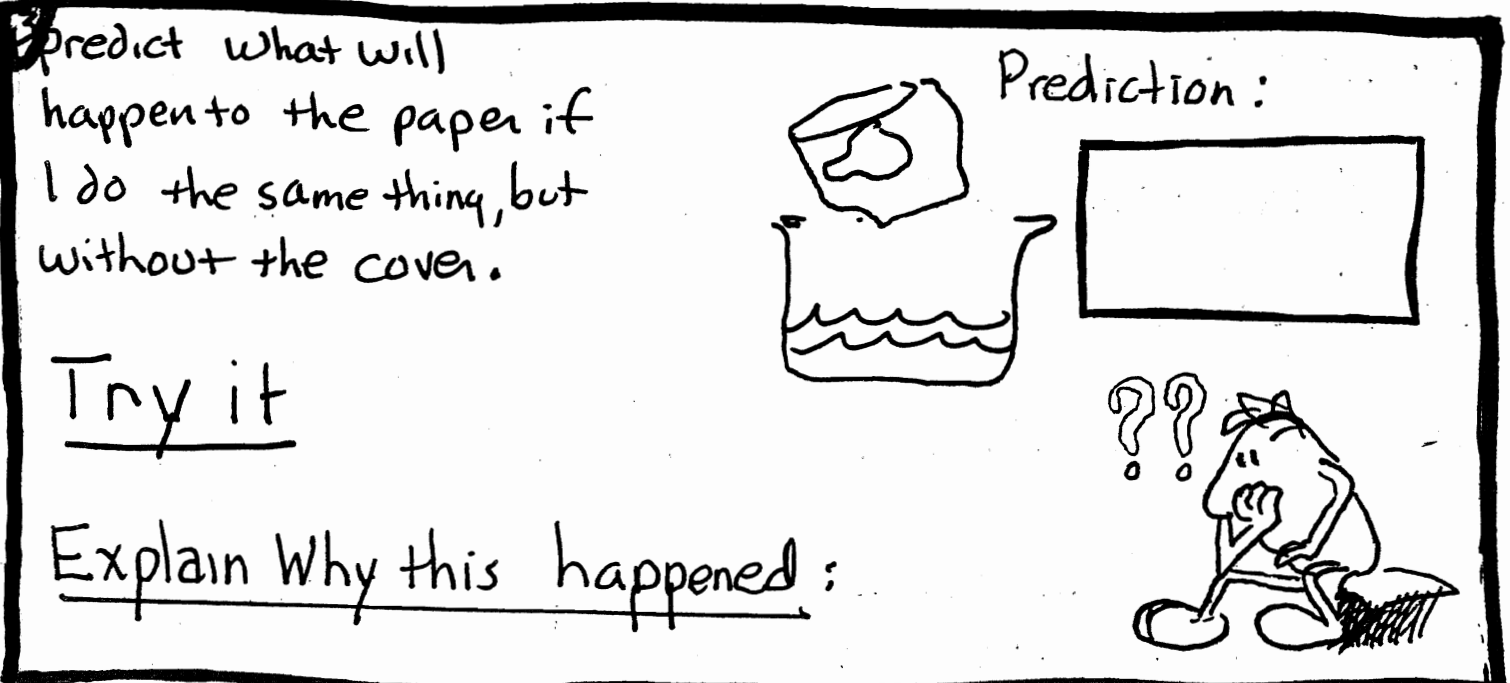 predict what will
happen to the paper if
I do the same thing, but
without the cover.
Prediction:
Try it
??
Explain Why this happened: